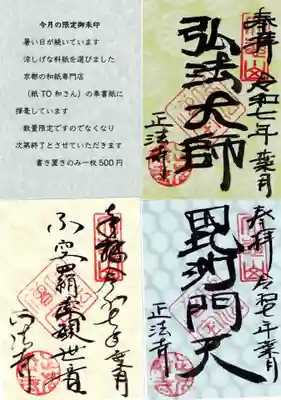 今月の限定御朱印
暑い日が続いています
涼しげな料紙を選びました
京都の和紙専門店
(紙TO和さん)の奉書紙に
揮毫しています
数量限定ですのでなくなり
次第終了とさせていただきます
書き置きのみ一枚500円
奉拝
令和七年葉月
弘法大師
正法寺
奉拝 令和七年葉月
不空羂索観世音
正法寺
奉拝
令和七年葉月
毘沙門天
正法寺